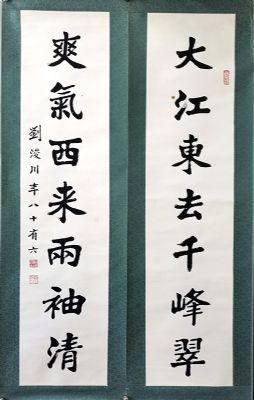 大江東去千峰翠
爽氣西来兩袖清
劉浚川年八十有六